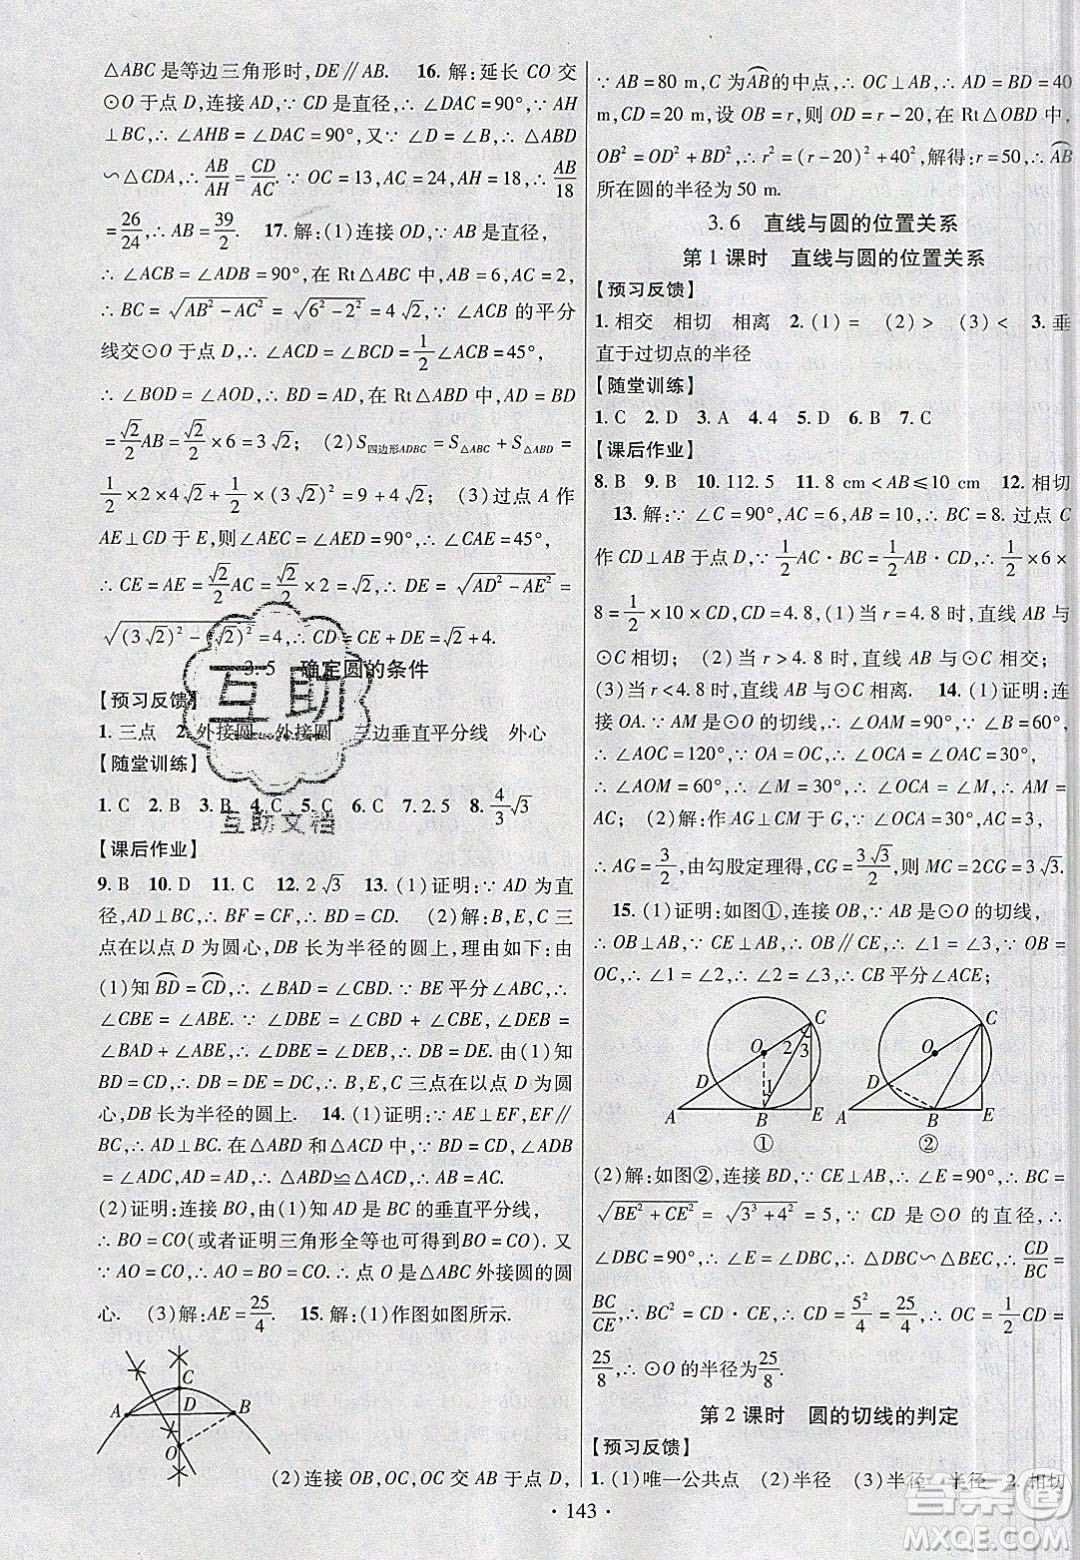 △ABC 是等边三角形时,DE∥AB. 16. 解:延长 CO 交
⊙O 于点 D,连接 AD,∵ CD 是直径,∴ ∠DAC=90°,∵ AH
⊥BC,∴ ∠AHB=∠DAC=90°,又∵ ∠D=∠B,∴ △ABD
∽△CDA,∴ AB/AH=CD/AC. ∵ OC=13,AC=24,AH=18,∴ AB/18
=26/24,∴ AB=39/2. 17. 解:(1)连接 OD,∵ AB 是直径,
∴ ∠ACB=∠ADB=90°,在 Rt△ABC 中,AB=6,AC=2,
∴ BC=√(AB²-AC²)=√(6²-2²)=4√2,∵ ∠ACB 的平分
线交⊙O 于点 D,∴ ∠ACD=∠BCD=1/2∠ACB=45°,
∴ ∠BOD=∠AOD,∴ BD=AD,在 Rt△ABD 中,BD=AD
=√2/2AB=√2/2×6=3√2; (2)S四边形ADBC=S△ABC+S△ABD=
1/2×2×4√2+1/2×3√2×3√2=9+4√2; (3)过点 A 作
AE⊥CD 于 E,则∠AEC=∠AED=90°,∵ ∠CAE=45°,
∴ CE=AE=√2/2AC=√2/2×2=√2,∴ DE=√(AD²-AE²)=
√((3√2)²-(√2)²)=4,∴ CD=CE+DE=√2+4.
3.5 确定圆的条件
【预习反馈】
1. 三点 2. 外接圆 外接圆 三边垂直平分线 外心
【随堂训练】
1. C 2. B 3. B 4. C 5. C 6. C 7. 2.5 8. 4/3√3
【课后作业】
9. B 10. D 11. C 12. 2√3 13. (1)证明:∵ AD 为直
径,AD⊥BC,∴ BF=CF,∴ BD=CD. (2)解:B,E,C 三
点在以点 D 为圆心,DB 长为半径的圆上,理由如下:由
(1)知 BD=CD,∴ ∠BAD=∠CBD. ∵ BE 平分∠ABC,∴
∠CBE=∠ABE. ∵ ∠DBE=∠CBD+∠CBE,∠DEB=
∠BAD+∠ABE,∴ ∠DBE=∠DEB,∴ BD=DE. 由(1)知
BD=CD,∴ DE=BD=CD,∴ B,E,C 三点在以点 D 为圆
心,DB 长为半径的圆上. 14. (1)证明:∵ AE⊥EF,EF∥
BC,∴ AD⊥BC. 在△ABD 和△ACD 中,∵ BD=CD,∠ADB
=∠ADC,AD=AD,∴ △ABD≌△ACD,∴ AB=AC.
(2)证明:连接 BO,由(1)知 AD 是 BC 的垂直平分线,
∴ BO=CO(或者证明三角形全等也可得到 BO=CO). 又
∵ AO=CO,∴ AO=BO=CO,∴ 点 O 是△ABC 外接圆的圆
心. (3)解:AE=25/4. 15. 解:(1)作图如图所示.
C
A D B
O
(2)连接 OB,OC,OC 交 AB 于点 D,
∵ AB=80 m,C 为AB的中点,∴ OC⊥AB,∴ AD=BD=40
m,CD=20 m,设 OB=r,则 OD=r-20,在 Rt△OBD 中,
OB²=OD²+BD²,∴ r²=(r-20)²+40²,解得:r=50,∴ AB
所在圆的半径为 50 m.
3.6 直线与圆的位置关系
第 1 课时 直线与圆的位置关系
【预习反馈】
1. 相交 相切 相离 2. (1)= (2)> (3)< 3. 垂
直于过切点的半径
【随堂训练】
1. C 2. D 3. A 4. 4 5. D 6. B 7. C
【课后作业】
8. B 9. B 10. 112.5 11. 8 cm<AB≤10 cm 12. 相切
13. 解:∵ ∠C=90°,AC=6,AB=10,∴ BC=8. 过点 C
作 CD⊥AB 于点 D,∵ 1/2AC·BC=1/2AB·CD,∴ 1/2×6×
8=1/2×10×CD,CD=4.8,(1)当 r=4.8 时,直线 AB 与
⊙C 相切; (2)当 r>4.8 时,直线 AB 与⊙C 相交;
(3)当 r<4.8 时,直线 AB 与⊙C 相离. 14. (1)证明:连
接 OA. ∵ AM 是⊙O 的切线,∴ ∠OAM=90°,∵ ∠B=60°,
∴ ∠AOC=120°,∵ OA=OC,∴ ∠OCA=∠OAC=30°,∴
∠AOM=60°,∴ ∠M=30°,∴ ∠OCA=∠M,∴ AM=
AC; (2)解:作 AG⊥CM 于 G,∵ ∠OCA=30°,AC=3,
∴ AG=3/2,由勾股定理得,CG=3√3/2,则 MC=2CG=3√3.
15. (1)证明:如图①,连接 OB,∵ AB 是⊙O 的切线,
∴ OB⊥AB,∵ CE⊥AB,∴ OB∥CE,∴ ∠1=∠3,∵ OB=
OC,∴ ∠1=∠2,∴ ∠2=∠3,∴ CB 平分∠ACE;
C O 2 3 D 1 A B E
C O D A B E
① ②
(2)解:如图②,连接 BD,∵ CE⊥AB,∴ ∠E=90°,∴ BC=
√(BE²+CE²)=√(3³+4²)=5,∵ CD 是⊙O 的直径,∴
∠DBC=90°,∴ ∠E=∠DBC,∴ △DBC∽△CBE,∴ CD/BC=
BC/CE,∴ BC²=CD·CE,∴ CD=5²/4=25/4,∴ OC=1/2CD=
25/8,∴ ⊙O 的半径为25/8.
第 2 课时 圆的切线的判定
【预习反馈】
1. (1)唯一公共点 (2)半径 (3)半径 半径 2. 相切
· 143 ·
互助
互助文档
答案圈
MXQE.COM